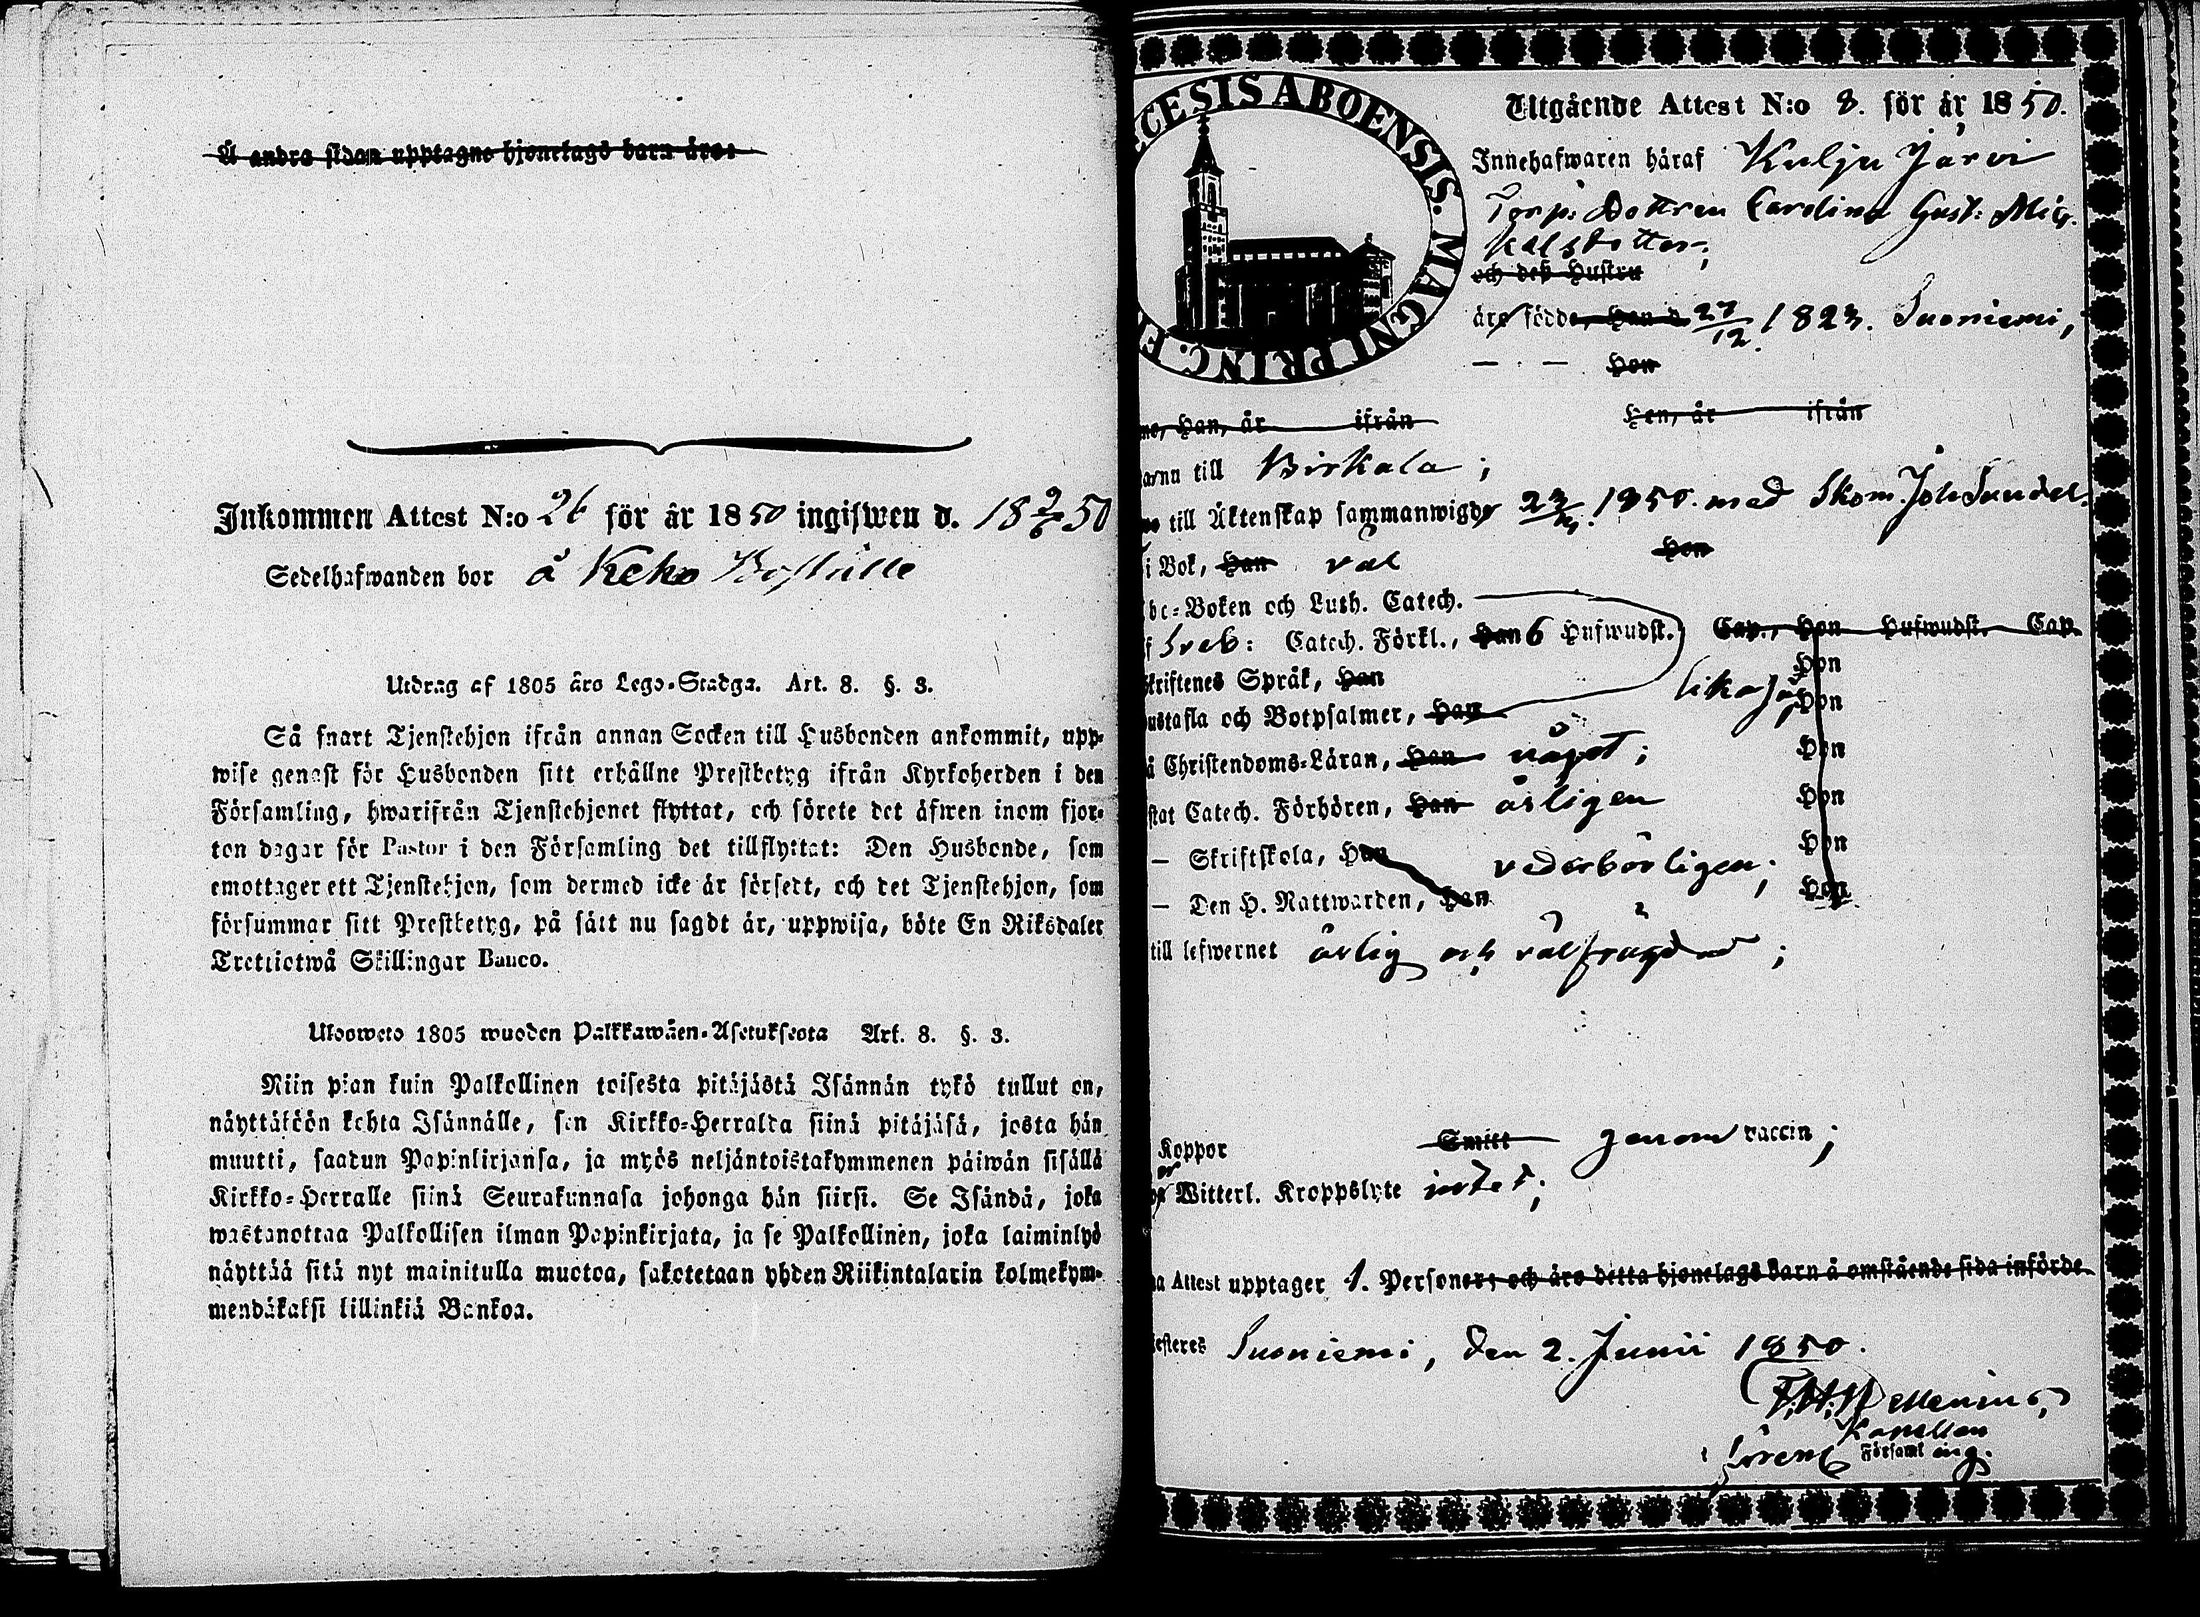 Å andra sidan upptagne hjonelags barn äro:
Inkommen Attest N:o 26 för år 1850 ingifwen d. 18 9/6 50
Sedelhafwanden bor å Keho Boställe
Utdrag af 1805 års Lego-Stadga. Art. 8. §. 3.
Så snart Tjenstehjon ifrån annan Socken till Husbonden ankommit, upp-
wise genast för Husbonden sitt erhållne Prestbetyg ifrån Kyrkoherden i den
Församling, hwarifrån Tjenstehjonet flyttat, och förete det äfwen inom fjor-
ton dagar för Pastor i den Församling det tillflyttat: Den Husbonde, som
emottager ett Tjenstehjon, som dermed icke är försedt, och det Tjenstehjon, som
försummar sitt Prestbetyg, på sätt nu sagdt är, uppwisa, böte En Riksdaler
Trettiotwå Skillingar Banco.
Uloosweto 1805 wuoden Palkkawäen-Asetuksesta Art. 8. §. 3.
Niin pian kuin Palkollinen toisesta pitäjästä Isännän tykö tullut on,
näyttäköön kohta Isännälle, sen Kirkko-Herralda siinä pitäjäsä, josta hän
muutti, saadun Papinkirjansa, ja myös neljäntoistakymmenen päiwän sisällä
Kirkko-Herralle siinä Seurakunnasa johonga hän siirsi. Se Isändä, joka
wastanottaa Palkollisen ilman Papinkirjata, ja se Palkollinen, joka laiminlyö
näyttää sitä nyt mainitulla muotoa, sakotetaan yhden Riikintalarin kolmekym-
mendäkaksi killinkiä Bankoa.
CESIS ABOENSIS. MAGNI PRINC. F
Utgående Attest N:o 8. för år 1850.
Innehafwaren häraf Kulju Järvi
Torp: Dottren Carolina Gust: Mic-
kelsdotter;
och deß Hustru
äro födde, Han d. 27/12 1823. Suoniemi,
— . — Hon
ne, Han, år ifrån Hon, år ifrån
arna till Birkala;
till Äktenskap sammanwigde 23/ 1850. med Skom. Joh Sundel.
i Bok, Han väl Hon
bc-Boken och Luth. Catech.
f Sveb: Catech. Förkl., Han 6 Hufwudst. Cap., Hon Hufwudst. Cap.
kriftenes Språk, Han likaså; Hon
ustafla och Botpsalmer, Han Hon
å Christendoms-Läran, Han något; Hon
stat Catech. Förhören, Han årligen Hon
— Skriftskola, Han vederbörligen; Hon
— Den H. Nattwarden, Han Hon
till lefwernet ärlig och välfrägdad;
Koppor Smitt genom vaccin;
Witterl. Kroppslyte intet;
na Attest upptager 1. Personer; och äro detta hjonelags barn å omstående sida införde.
esteres Suoniemi, den 2. Junii 1850.
F. H. Mellenius,
Kapellan
Församling.